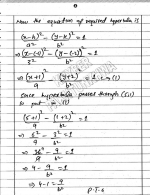 Now the equation of required hyperbola is
(x-h)²/a² - (y-k)²/b² = 1
⇒ (x-(-1))²/3² - (y-(-2))²/b² = 1
⇒ (x+1)²/9 - (y+2)²/b² = 1 → (1)
Since hyperbola passes through (5,1)
so put in (1)
(5+1)²/9 - (1+2)²/b² = 1
⇒ 6²/9 - 3²/b² = 1
⇒ 36/9 - 9/b² = 1
⇒ 4 - 9/b² = 1
⇒ 4-1 = 9/b²
P.T.O